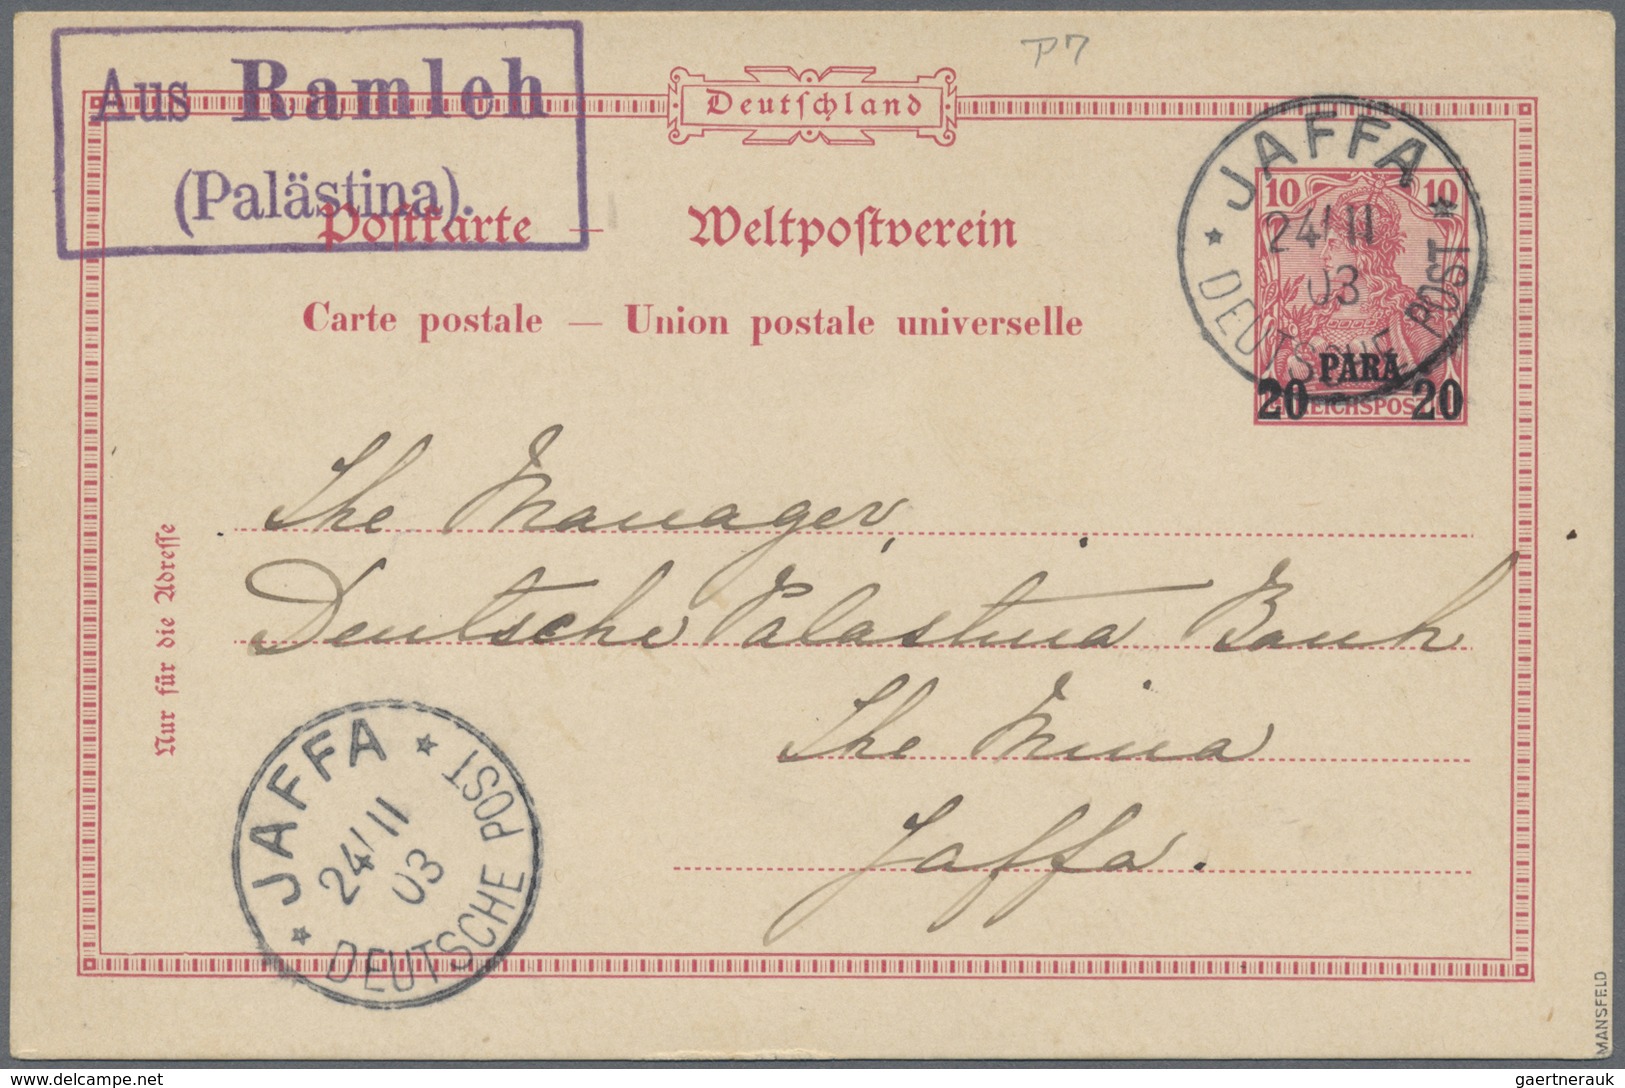 P7
Aus Ramleh
(Palästina).
Deutschland
Postkarte — Weltpostverein
Carte postale — Union postale universelle
JAFFA
24/11
03
DEUTSCHE POST
10 10
PARA
20 20
REICHSPOST
The Manager,
Deutsche Palästina Bank
The Mina
Jaffa.
Nur für die Adresse
JAFFA
24/11
03
DEUTSCHE POST
MANSFELD
www.delcampe.net
gaertnerauk